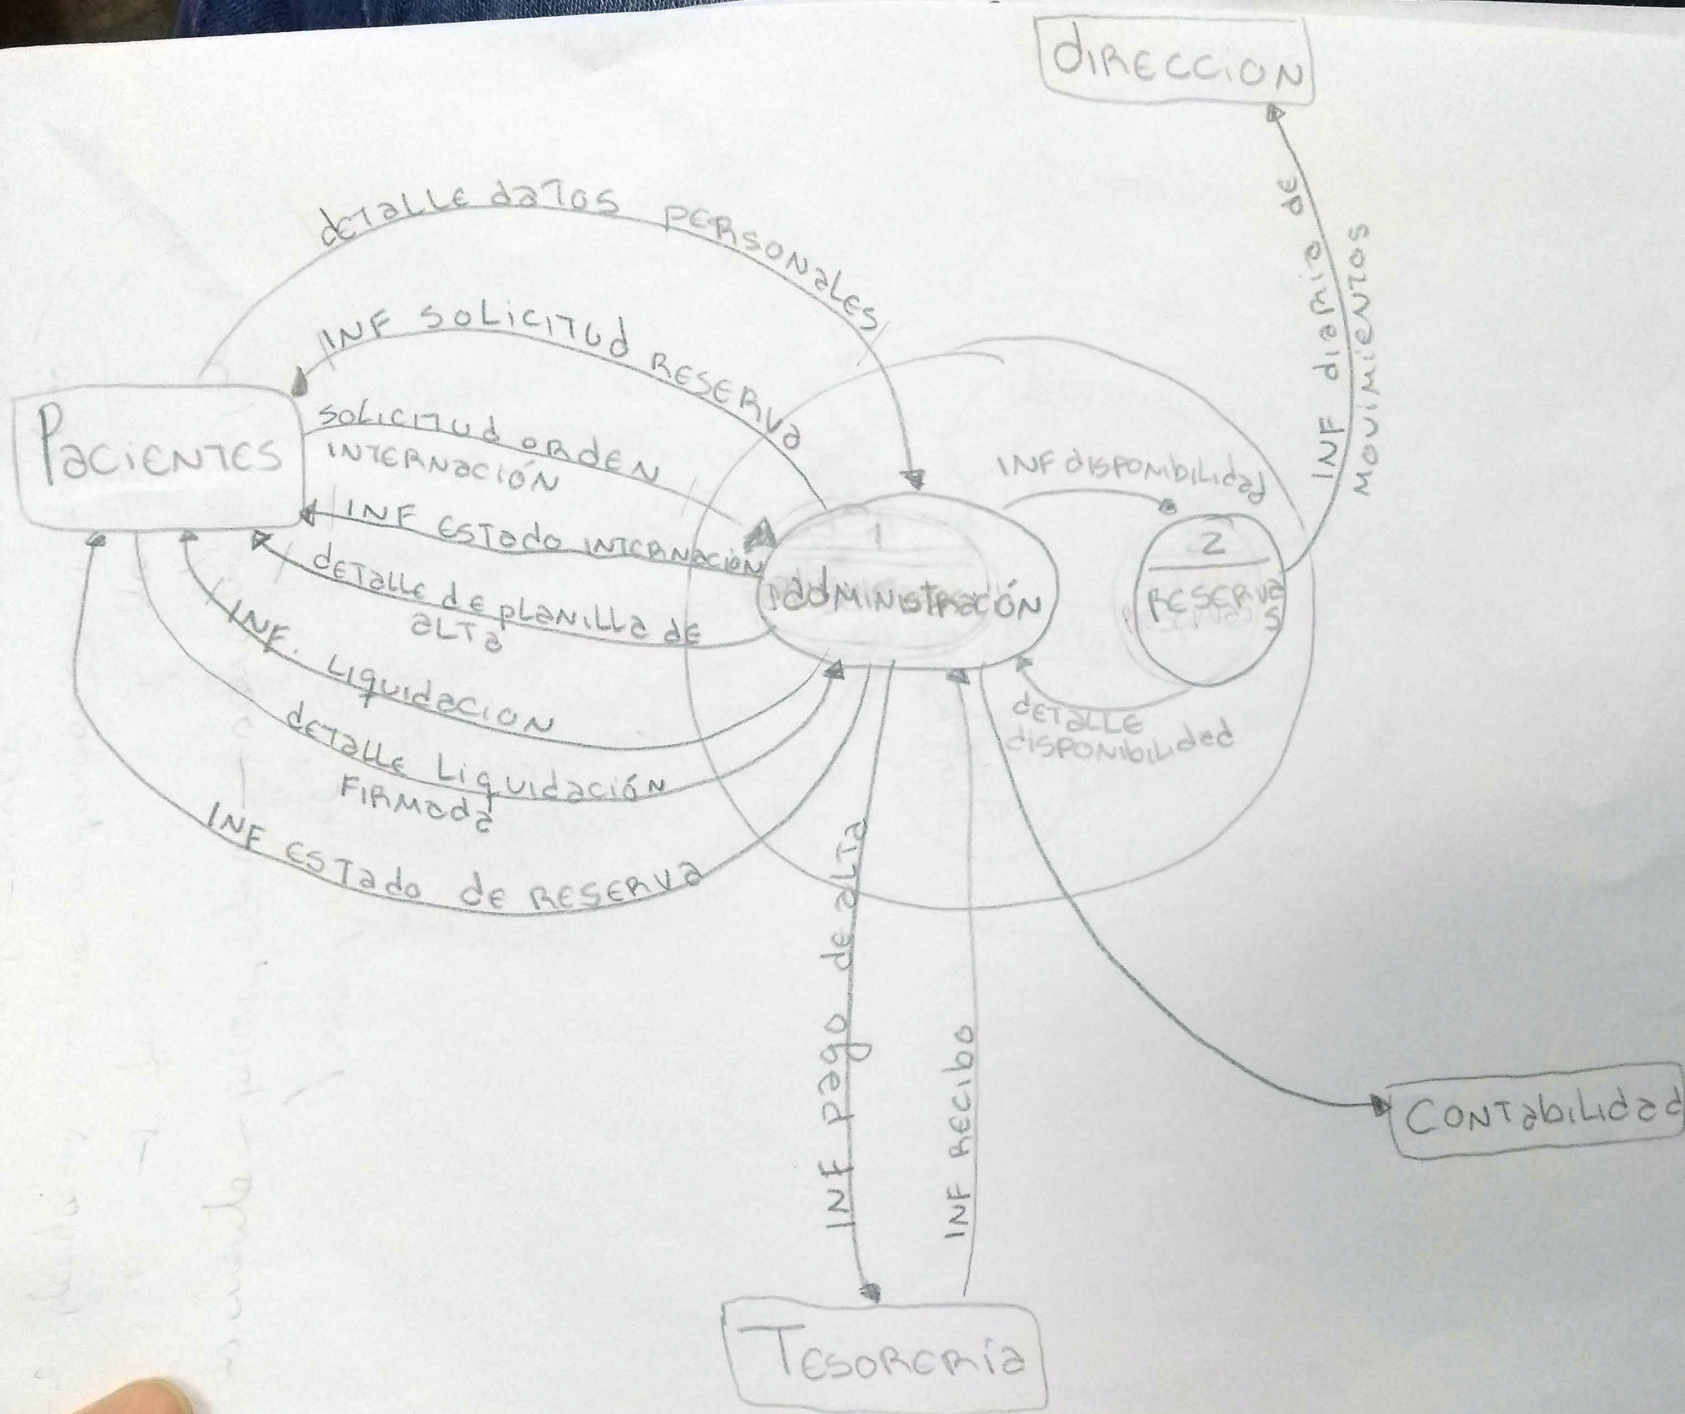 DIRECCION
DETALLE DATOS PERSONALES
INF SOLICITUD RESERVA
INF DIARIO DE
MOVIMIENTOS
PACIENTES
SOLICITUD ORDEN
INTERNACIÓN
INF ESTADO INTERNACIÓN
DETALLE DE PLANILLA DE
ALTA
INF. LIQUIDACION
DETALLE LIQUIDACIÓN
FIRMADA
INF ESTADO DE RESERVA
1
ADMINISTRACIÓN
INF DISPONIBILIDAD
2
RESERVA
S
DETALLE
DISPONIBILIDAD
INF PAGO DE ALTA
INF RECIBO
CONTABILIDAD
TESORERÍA